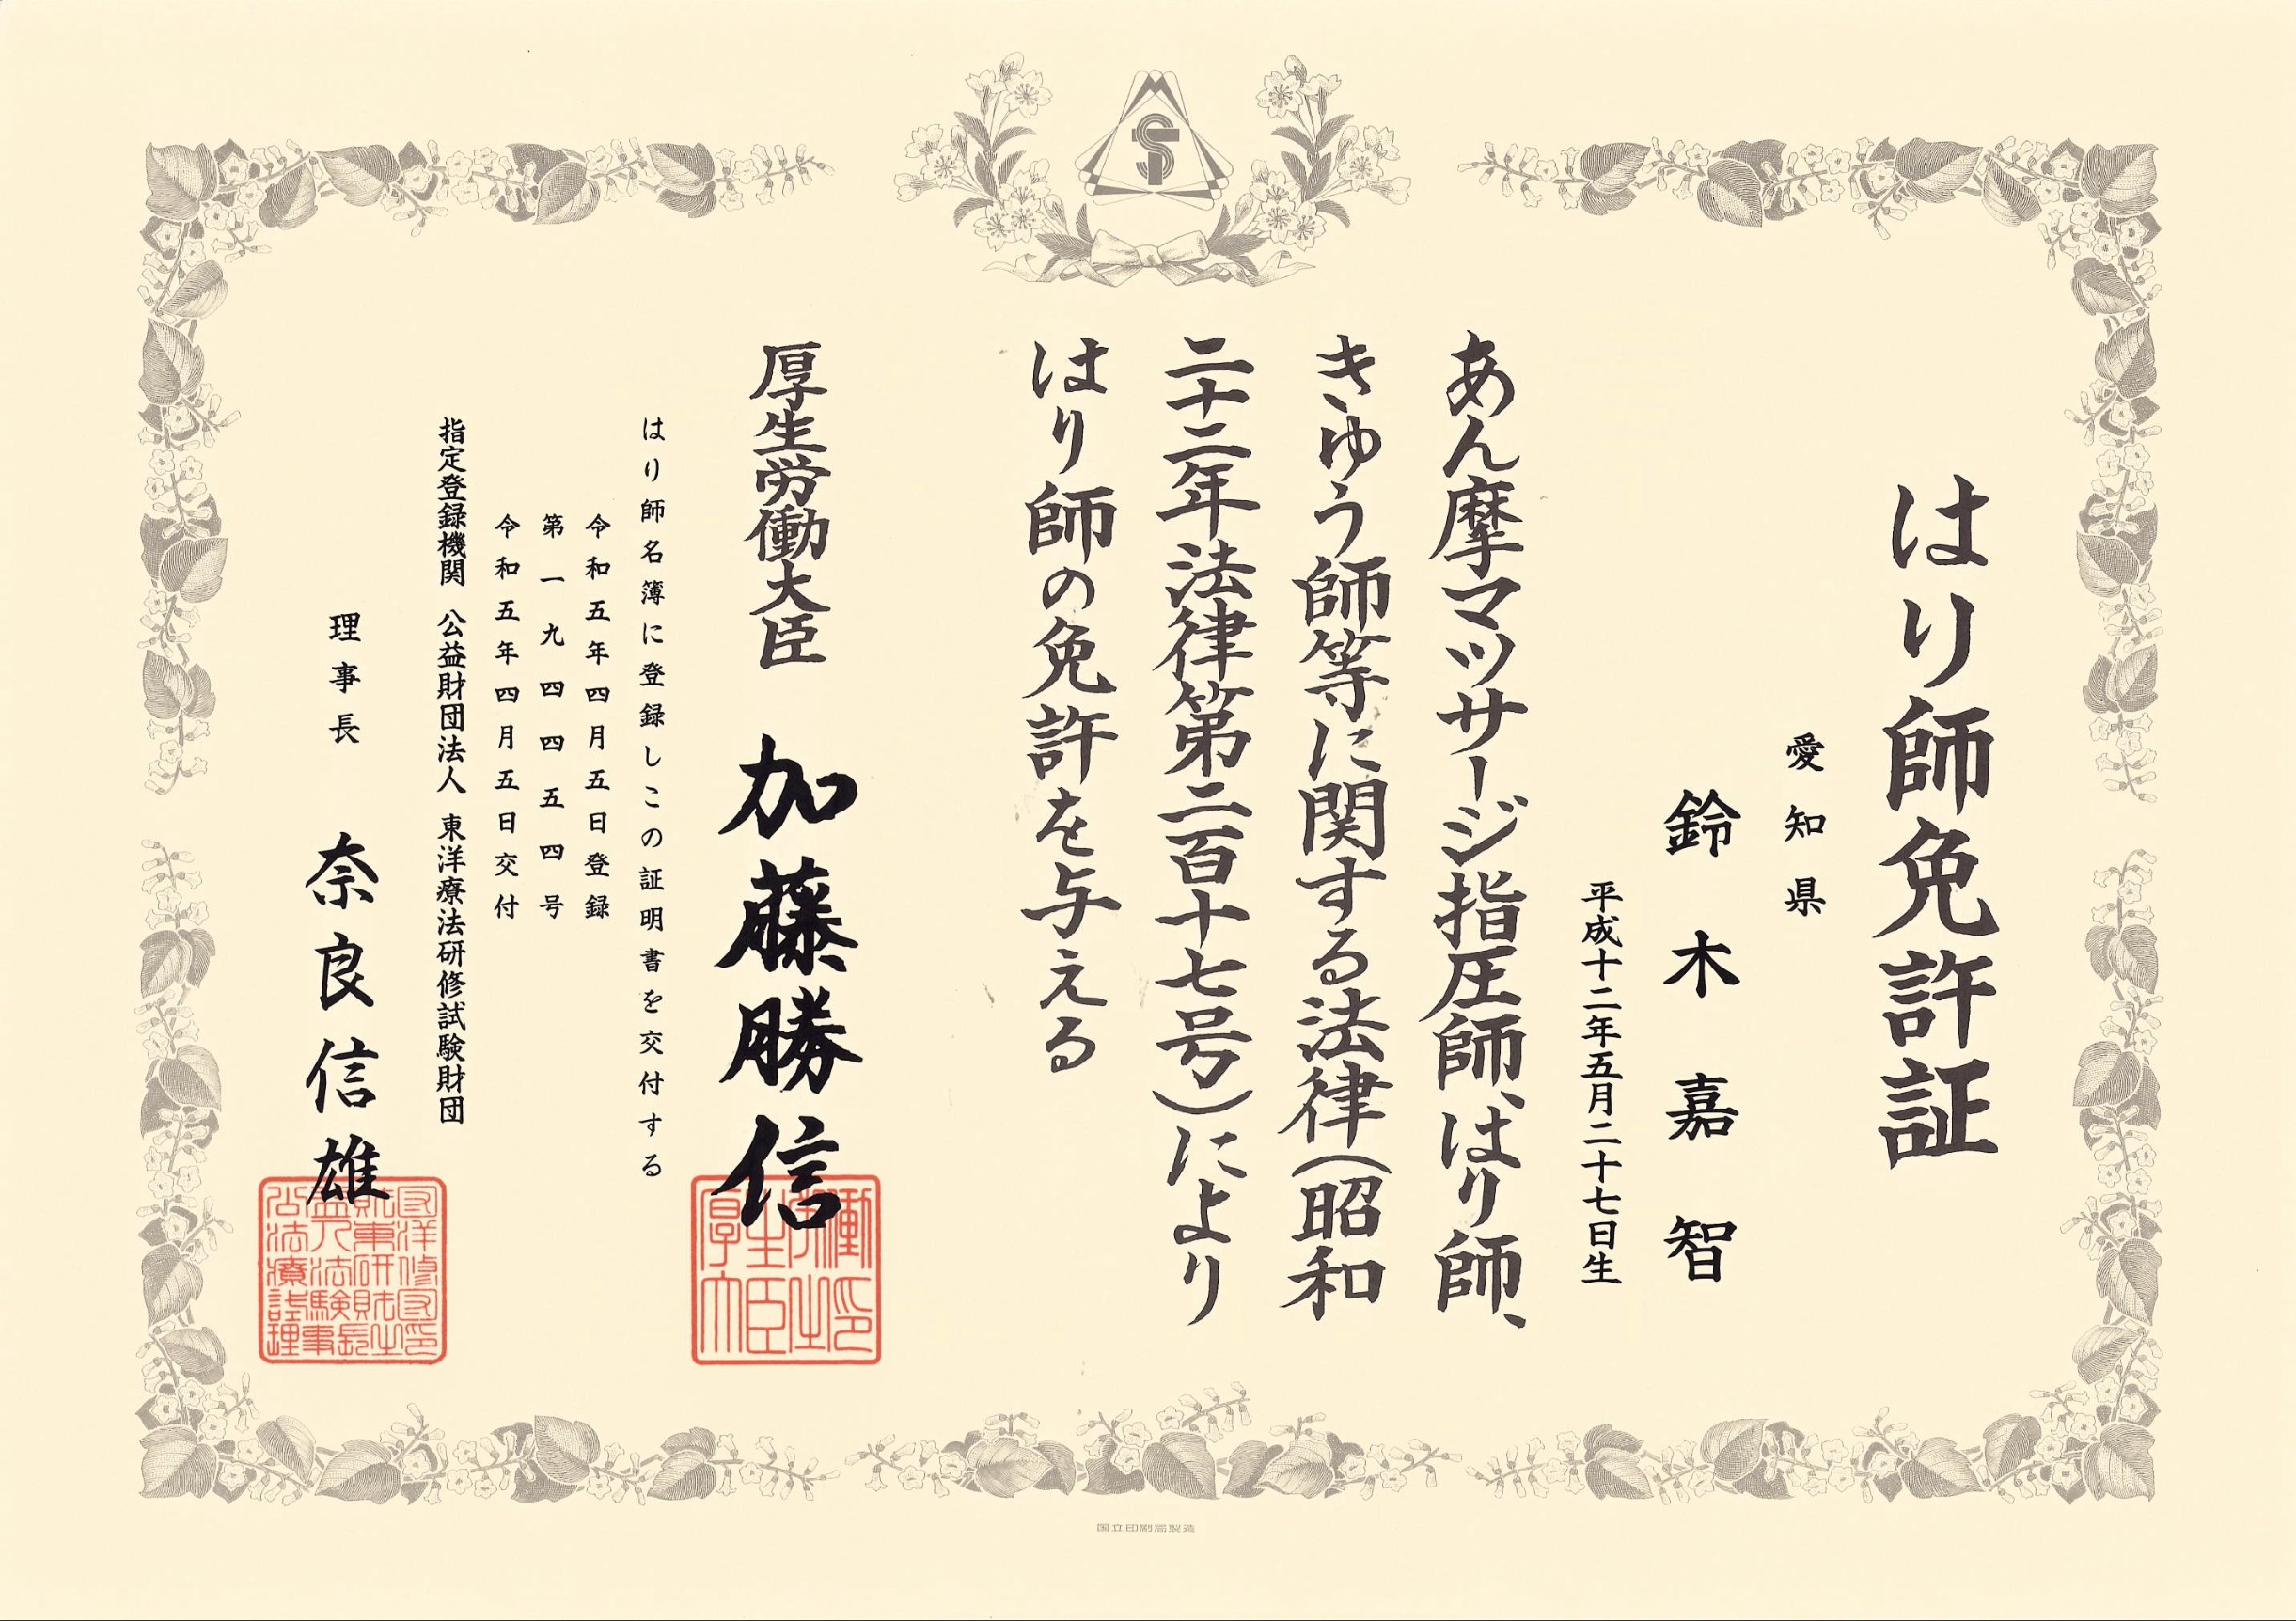 はり師免許証
愛知県
鈴木嘉智
平成十二年五月二十七日生
あん摩マツサージ指圧師、はり師、
きゆう師等に関する法律(昭和
二十二年法律第二百十七号)により
はり師の免許を与える
厚生労働大臣 加藤勝信
はり師名簿に登録しこの証明書を交付する
令和五年四月五日登録
第一九四四五四号
令和五年四月五日交付
指定登録機関 公益財団法人 東洋療法研修試験財団
理事長 奈良信雄
国立印刷局製造